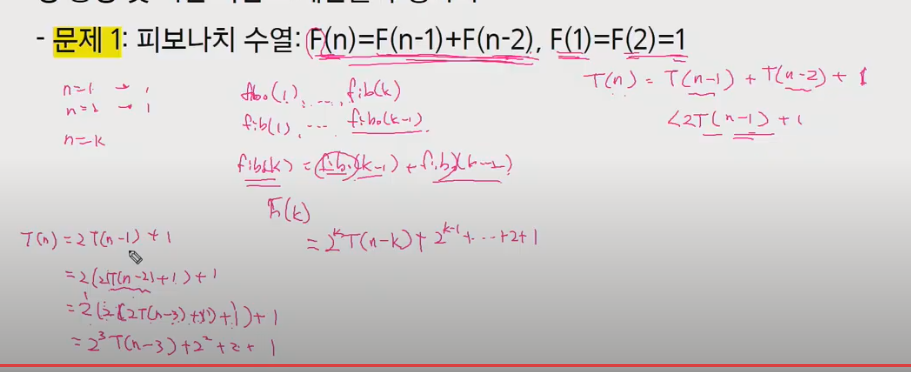 - 문제 1: 피보나치 수열: F(n)=F(n-1)+F(n-2), F(1)=F(2)=1
n=1 → 1
n=2 → 1
n=k
fibo(1), ..., fib(k)
fib(1), ... fibo(k-1)
fib(k) = fib(k-1) + fib(k-2)
T(k)
T(n) = T(n-1) + T(n-2) + 1
<2T(n-1) + 1
T(n) = 2T(n-1) + 1
= 2(2T(n-2)+1) + 1
= 2(2(2T(n-3)+1)+1)+1
= 2³T(n-3)+2²+2+1
= 2ᵏT(n-k)+2ᵏ⁻¹+...+2+1